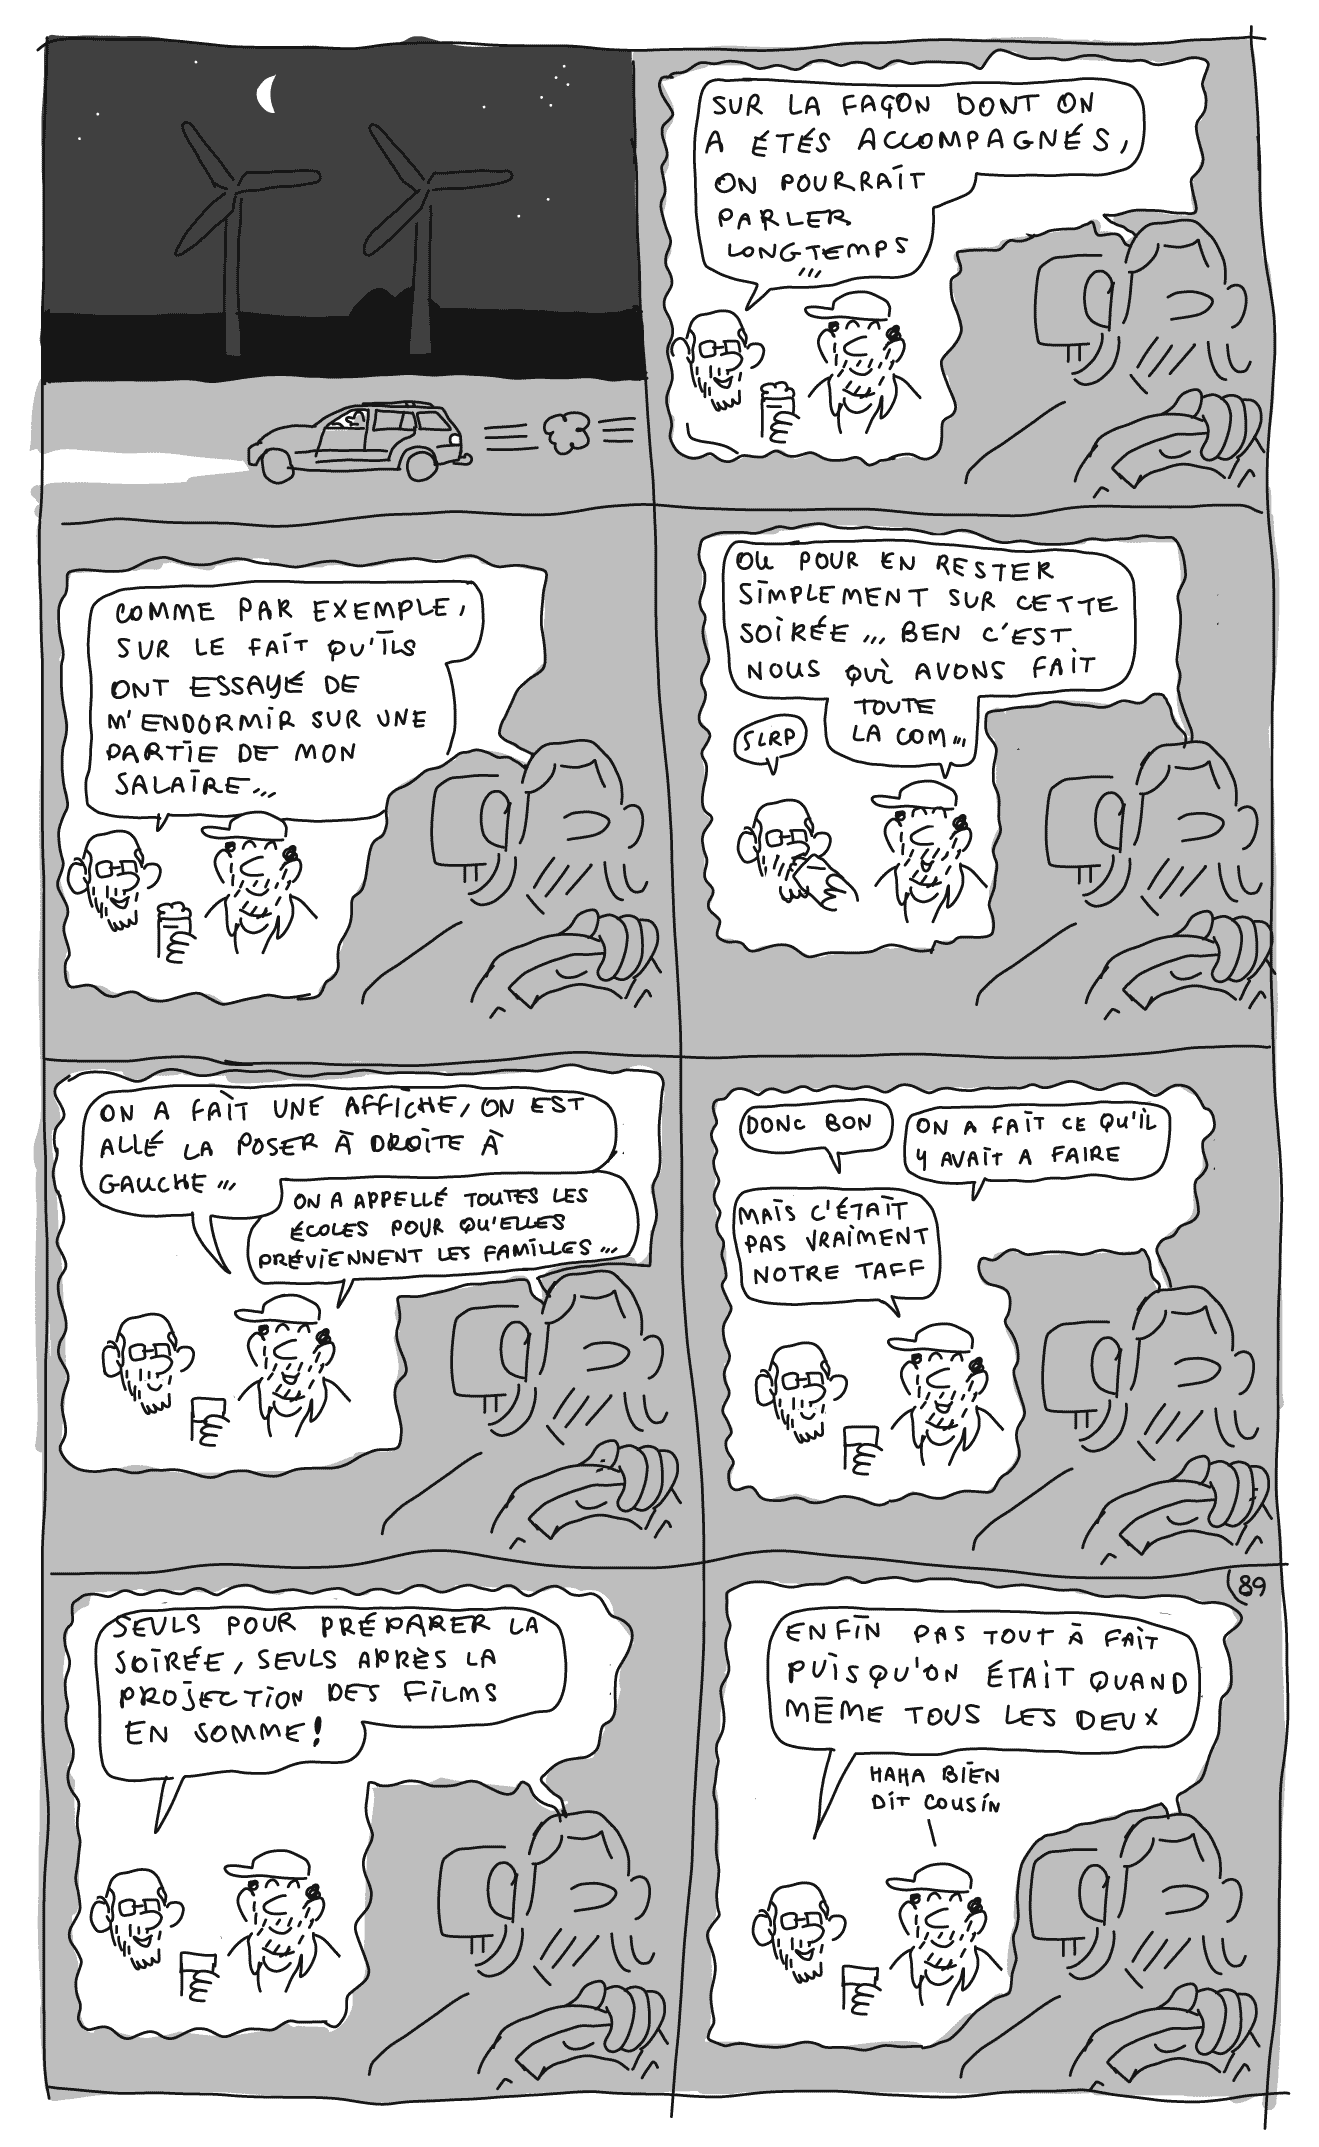 SUR LA FAÇON DONT ON
A ÉTÉS ACCOMPAGNÉS,
ON POURRAIT
PARLER
LONGTEMPS
...
COMME PAR EXEMPLE,
SUR LE FAIT QU'ILS
ONT ESSAYÉ DE
M'ENDORMIR SUR UNE
PARTIE DE MON
SALAIRE...
OU POUR EN RESTER
SIMPLEMENT SUR CETTE
SOIRÉE... BEN C'EST
NOUS QUI AVONS FAIT
TOUTE
LA COM...
SLRP
ON A FAIT UNE AFFICHE, ON EST
ALLÉ LA POSER À DROITE À
GAUCHE...
ON A APPELLÉ TOUTES LES
ÉCOLES POUR QU'ELLES
PRÉVIENNENT LES FAMILLES...
DONC BON
ON A FAIT CE QU'IL
Y AVAIT A FAIRE
MAIS C'ÉTAIT
PAS VRAIMENT
NOTRE TAFF
SEULS POUR PRÉPARER LA
SOIRÉE, SEULS APRÈS LA
PROJECTION DES FILMS
EN SOMME!
89
ENFIN PAS TOUT À FAIT
PUISQU'ON ÉTAIT QUAND
MÊME TOUS LES DEUX
HAHA BIEN
DIT COUSIN